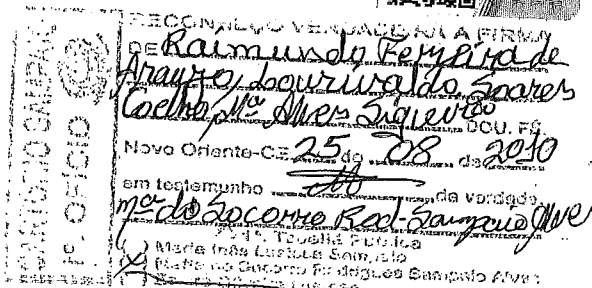 RECONHEÇO VERDADEIRA A FIRMA
DE Raimundo Ferreira de
Araujo, Lourivaldo Soares
Coelho, Mª Alves Sigieredo
DOU. FÉ
Novo Oriente-CE 25 de 08 de 2010
em testemunho da verdade
mª do Socorro Rod-Sampaio Alves
Tabeliã Pública
Maria Inês Sampaio
Maria do Socorro Rodrigues Sampaio Alves
CARTÓRIO SAMPAIO
1º OFÍCIO